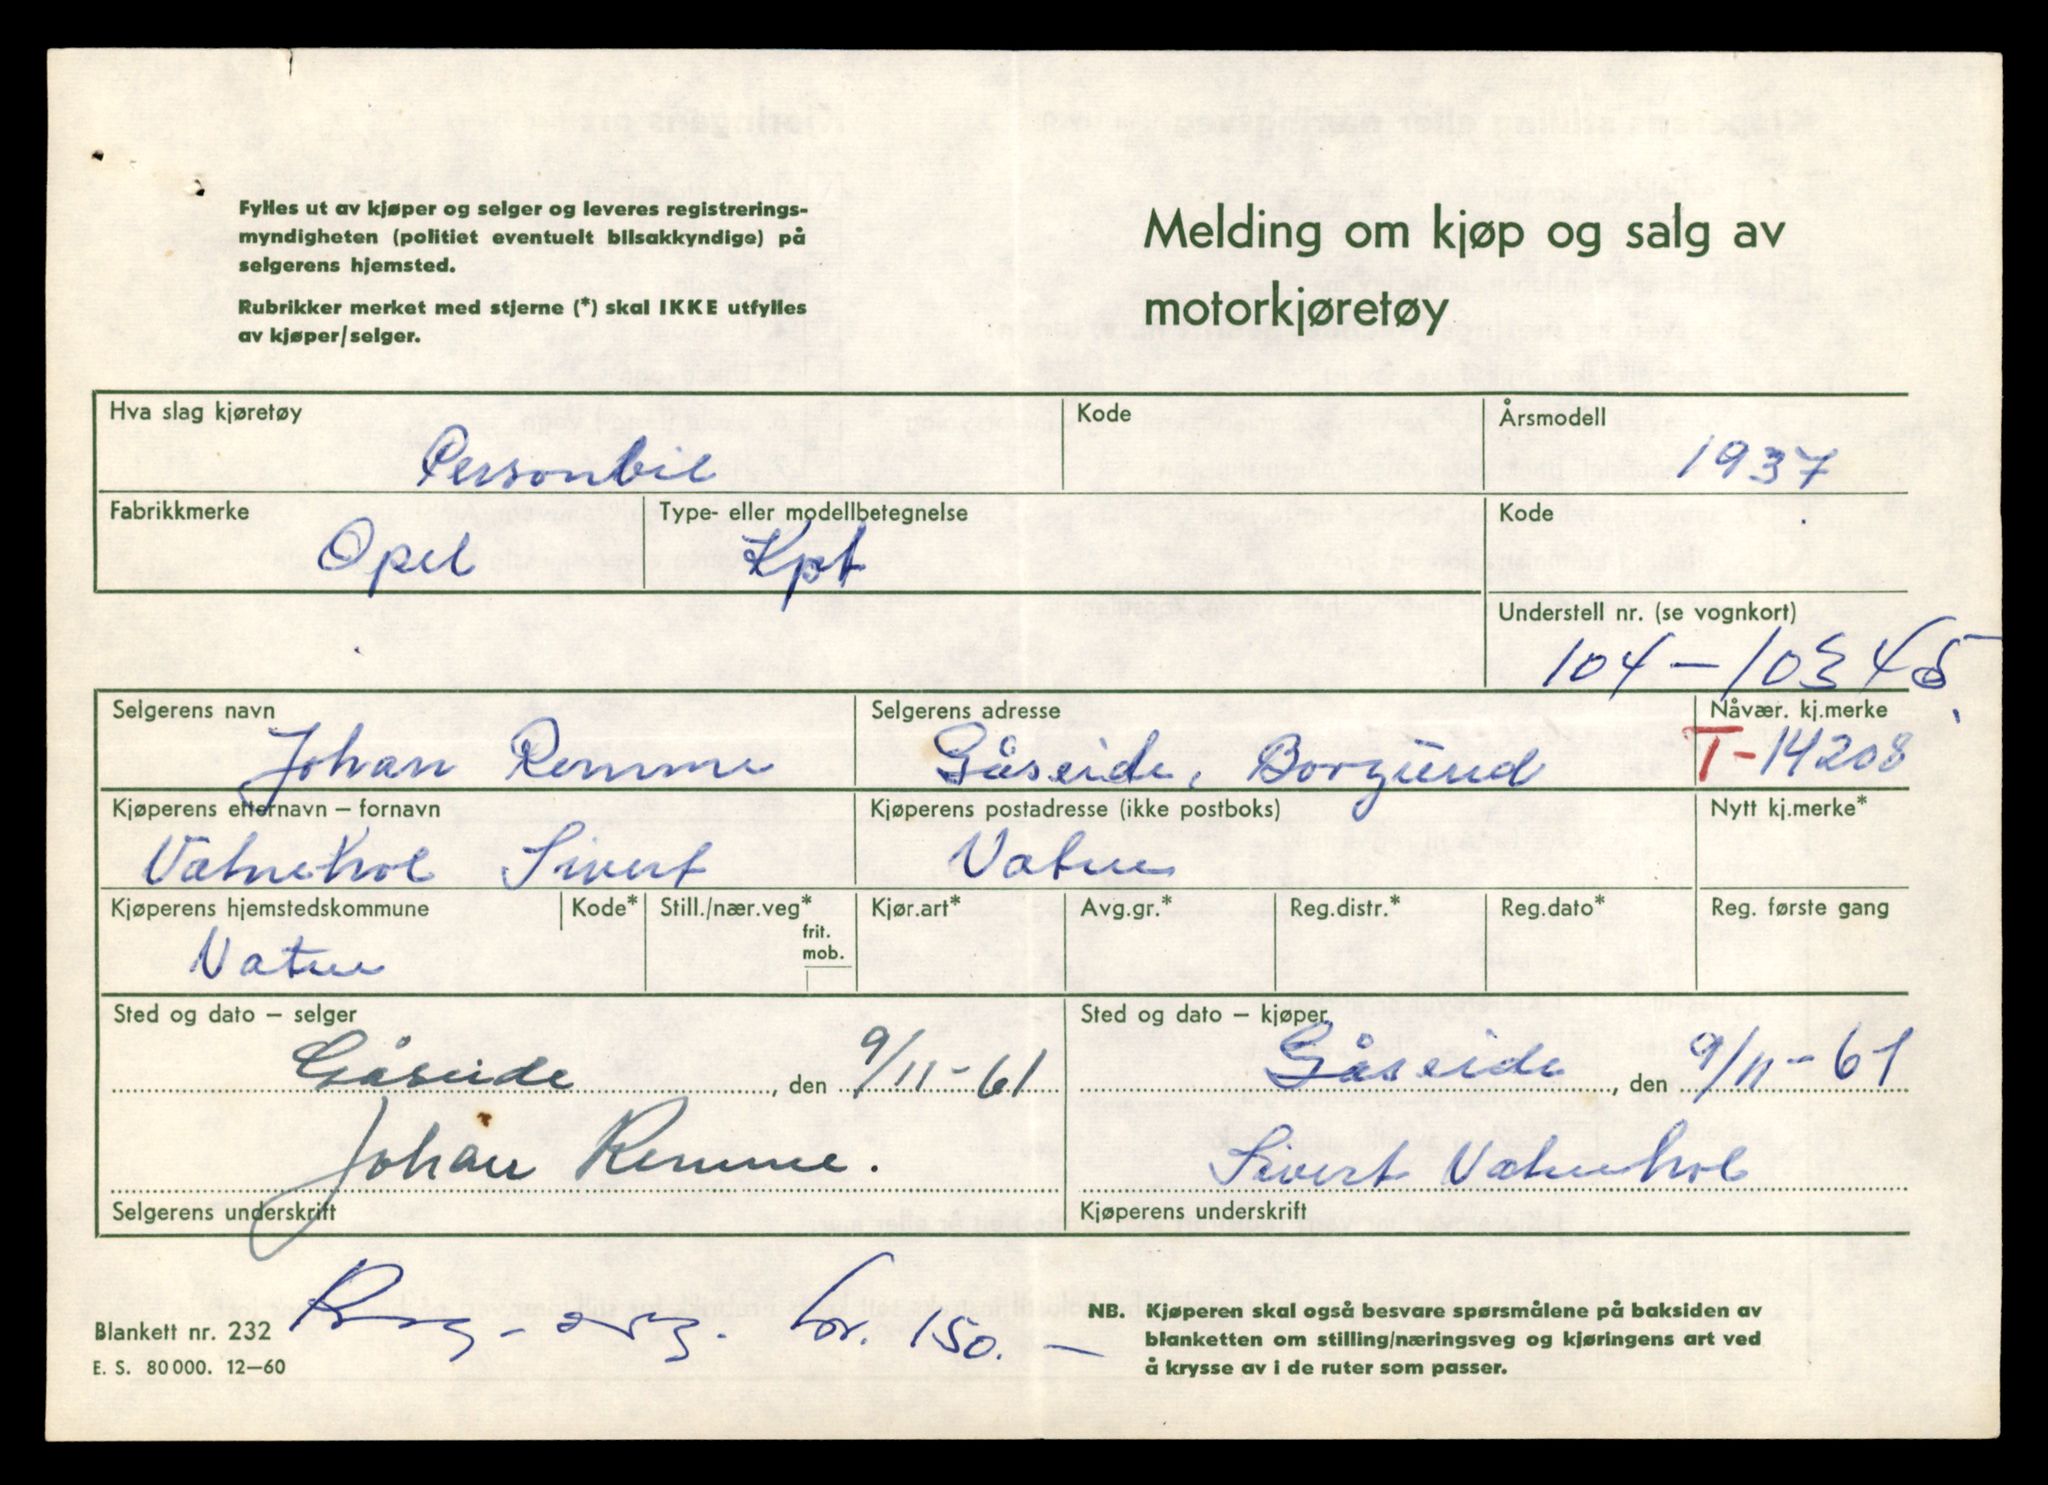 Fylles ut av kjøper og selger og leveres registrerings-
myndigheten (politiet eventuelt bilsakkyndige) på
selgerens hjemsted.
Rubrikker merket med stjerne (*) skal IKKE utfylles
av kjøper/selger.
Melding om kjøp og salg av
motorkjøretøy
Hva slag kjøretøy
Personbil
Kode
Årsmodell
1937
Fabrikkmerke
Opel
Type- eller modellbetegnelse
Kpt
Kode
Understell nr. (se vognkort)
104-10345
Selgerens navn
Johan Remme
Selgerens adresse
Gåseide, Borgund
Nåvær. kj.merke
T-14208
Kjøperens etternavn – fornavn
Vatnehol Sivert
Kjøperens postadresse (ikke postboks)
Vatne
Nytt kj.merke*
Kjøperens hjemstedskommune
Vatne
Kode*
Still./nær.veg*
frit.
mob.
Kjør.art*
Avg.gr.*
Reg.distr.*
Reg.dato*
Reg. første gang
Sted og dato – selger
Gåseide, den 9/11-61
Johan Remme.
Selgerens underskrift
Sted og dato – kjøper
Gåseide, den 9/11-61
Sivert Vatnehol
Kjøperens underskrift
Reg.-avg. kr. 150.-
Blankett nr. 232
E. S. 80 000. 12–60
NB. Kjøperen skal også besvare spørsmålene på baksiden av
blanketten om stilling/næringsveg og kjøringens art ved
å krysse av i de ruter som passer.